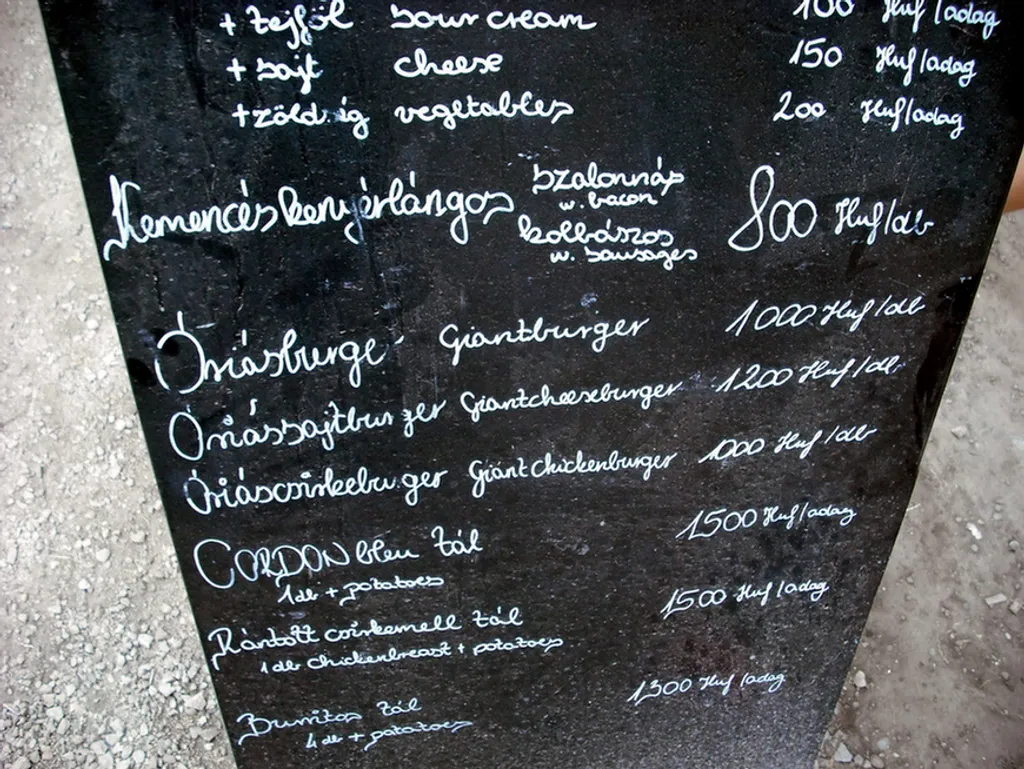 + tejföl sour cream 100 Huf/adag
+ sajt cheese 150 Huf/adag
+ zöldség vegetables 200 Huf/adag
Kemencés kenyérlángos szalonnás 800 Huf/db
w. bacon
kolbászos
w. sausages
Óriásburger Giantburger 1000 Huf/db
Óriássajtburger Giantcheeseburger 1200 Huf/db
Óriáscsirkeburger Giantchickenburger 1000 Huf/db
CORDON bleu tál 1500 Huf/adag
1 db + potatoes
Rántott csirkemell tál 1500 Huf/adag
1 db chickenbreast + potatoes
Burritos tál 1300 Huf/adag
4 db + potatoes